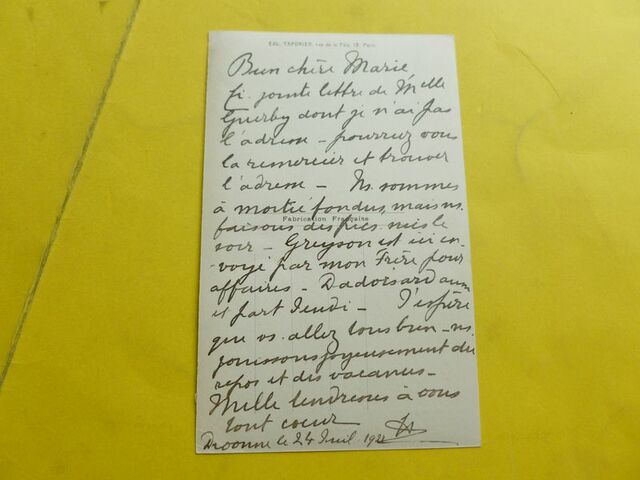 Edit. TAPONIER, rue de la Paix, 12, Paris.
Bien chère Marie
Ci-jointe lettre de Melle
dont je n'ai pas
l'adresse - pourriez vous
la remercier et trouver
l'adresse - Ns. sommes
à moitié fondus, mais ns.
Fabrication Française
faisons des pics-nics le
soir - Greyson est ici en-
voyé par mon Frère pour
affaires - aussi
et part Jeudi - J'espère
que vs. allez tous bien - ns.
jouissons joyeusement du
repos et des vacances -
Mille tendresses à vous
tout coeur
le 24 Juil. 1921